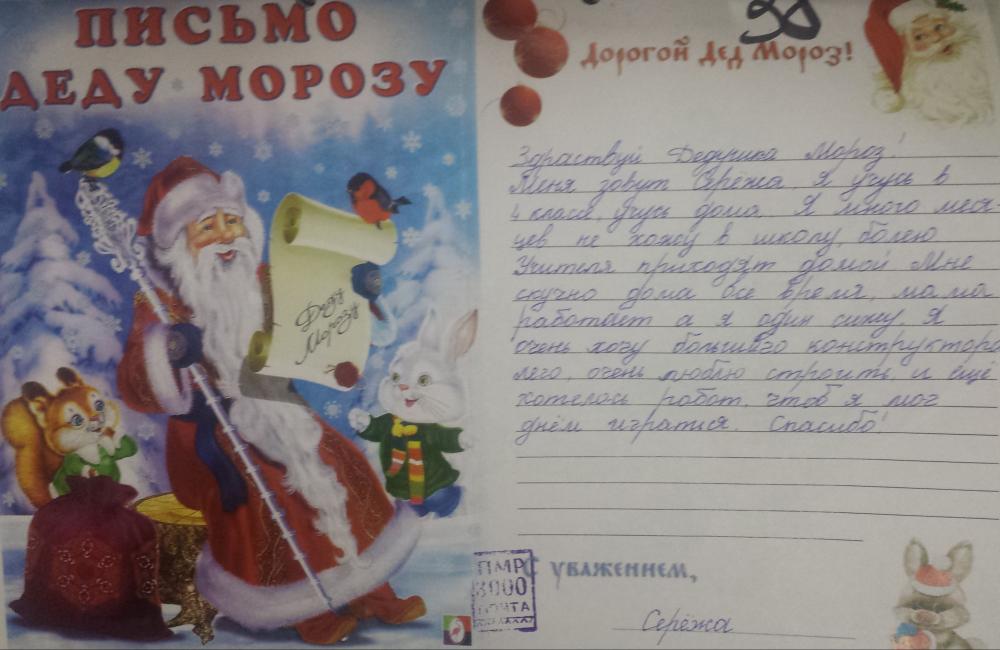 ПИСЬМО
ДЕДУ МОРОЗУ
Деду
Морозу
Дорогой Дед Мороз!
Здраствуй Дедушка Мороз!
Меня зовут Серёжа. Я учусь в
4 класе, учусь дома. Я много меся-
цев не хожу в школу, болею
Учителя приходят домой Мне
скучно дома все время, мама
работает а я один сижу Я
очень хочу большого конструктора
лего, очень люблю строить, и ещё
хотелось робот, чтоб я мог
днём игратся. Спасибо!
С уважением,
Серёжа
ПМР
3900
ПОЧТА